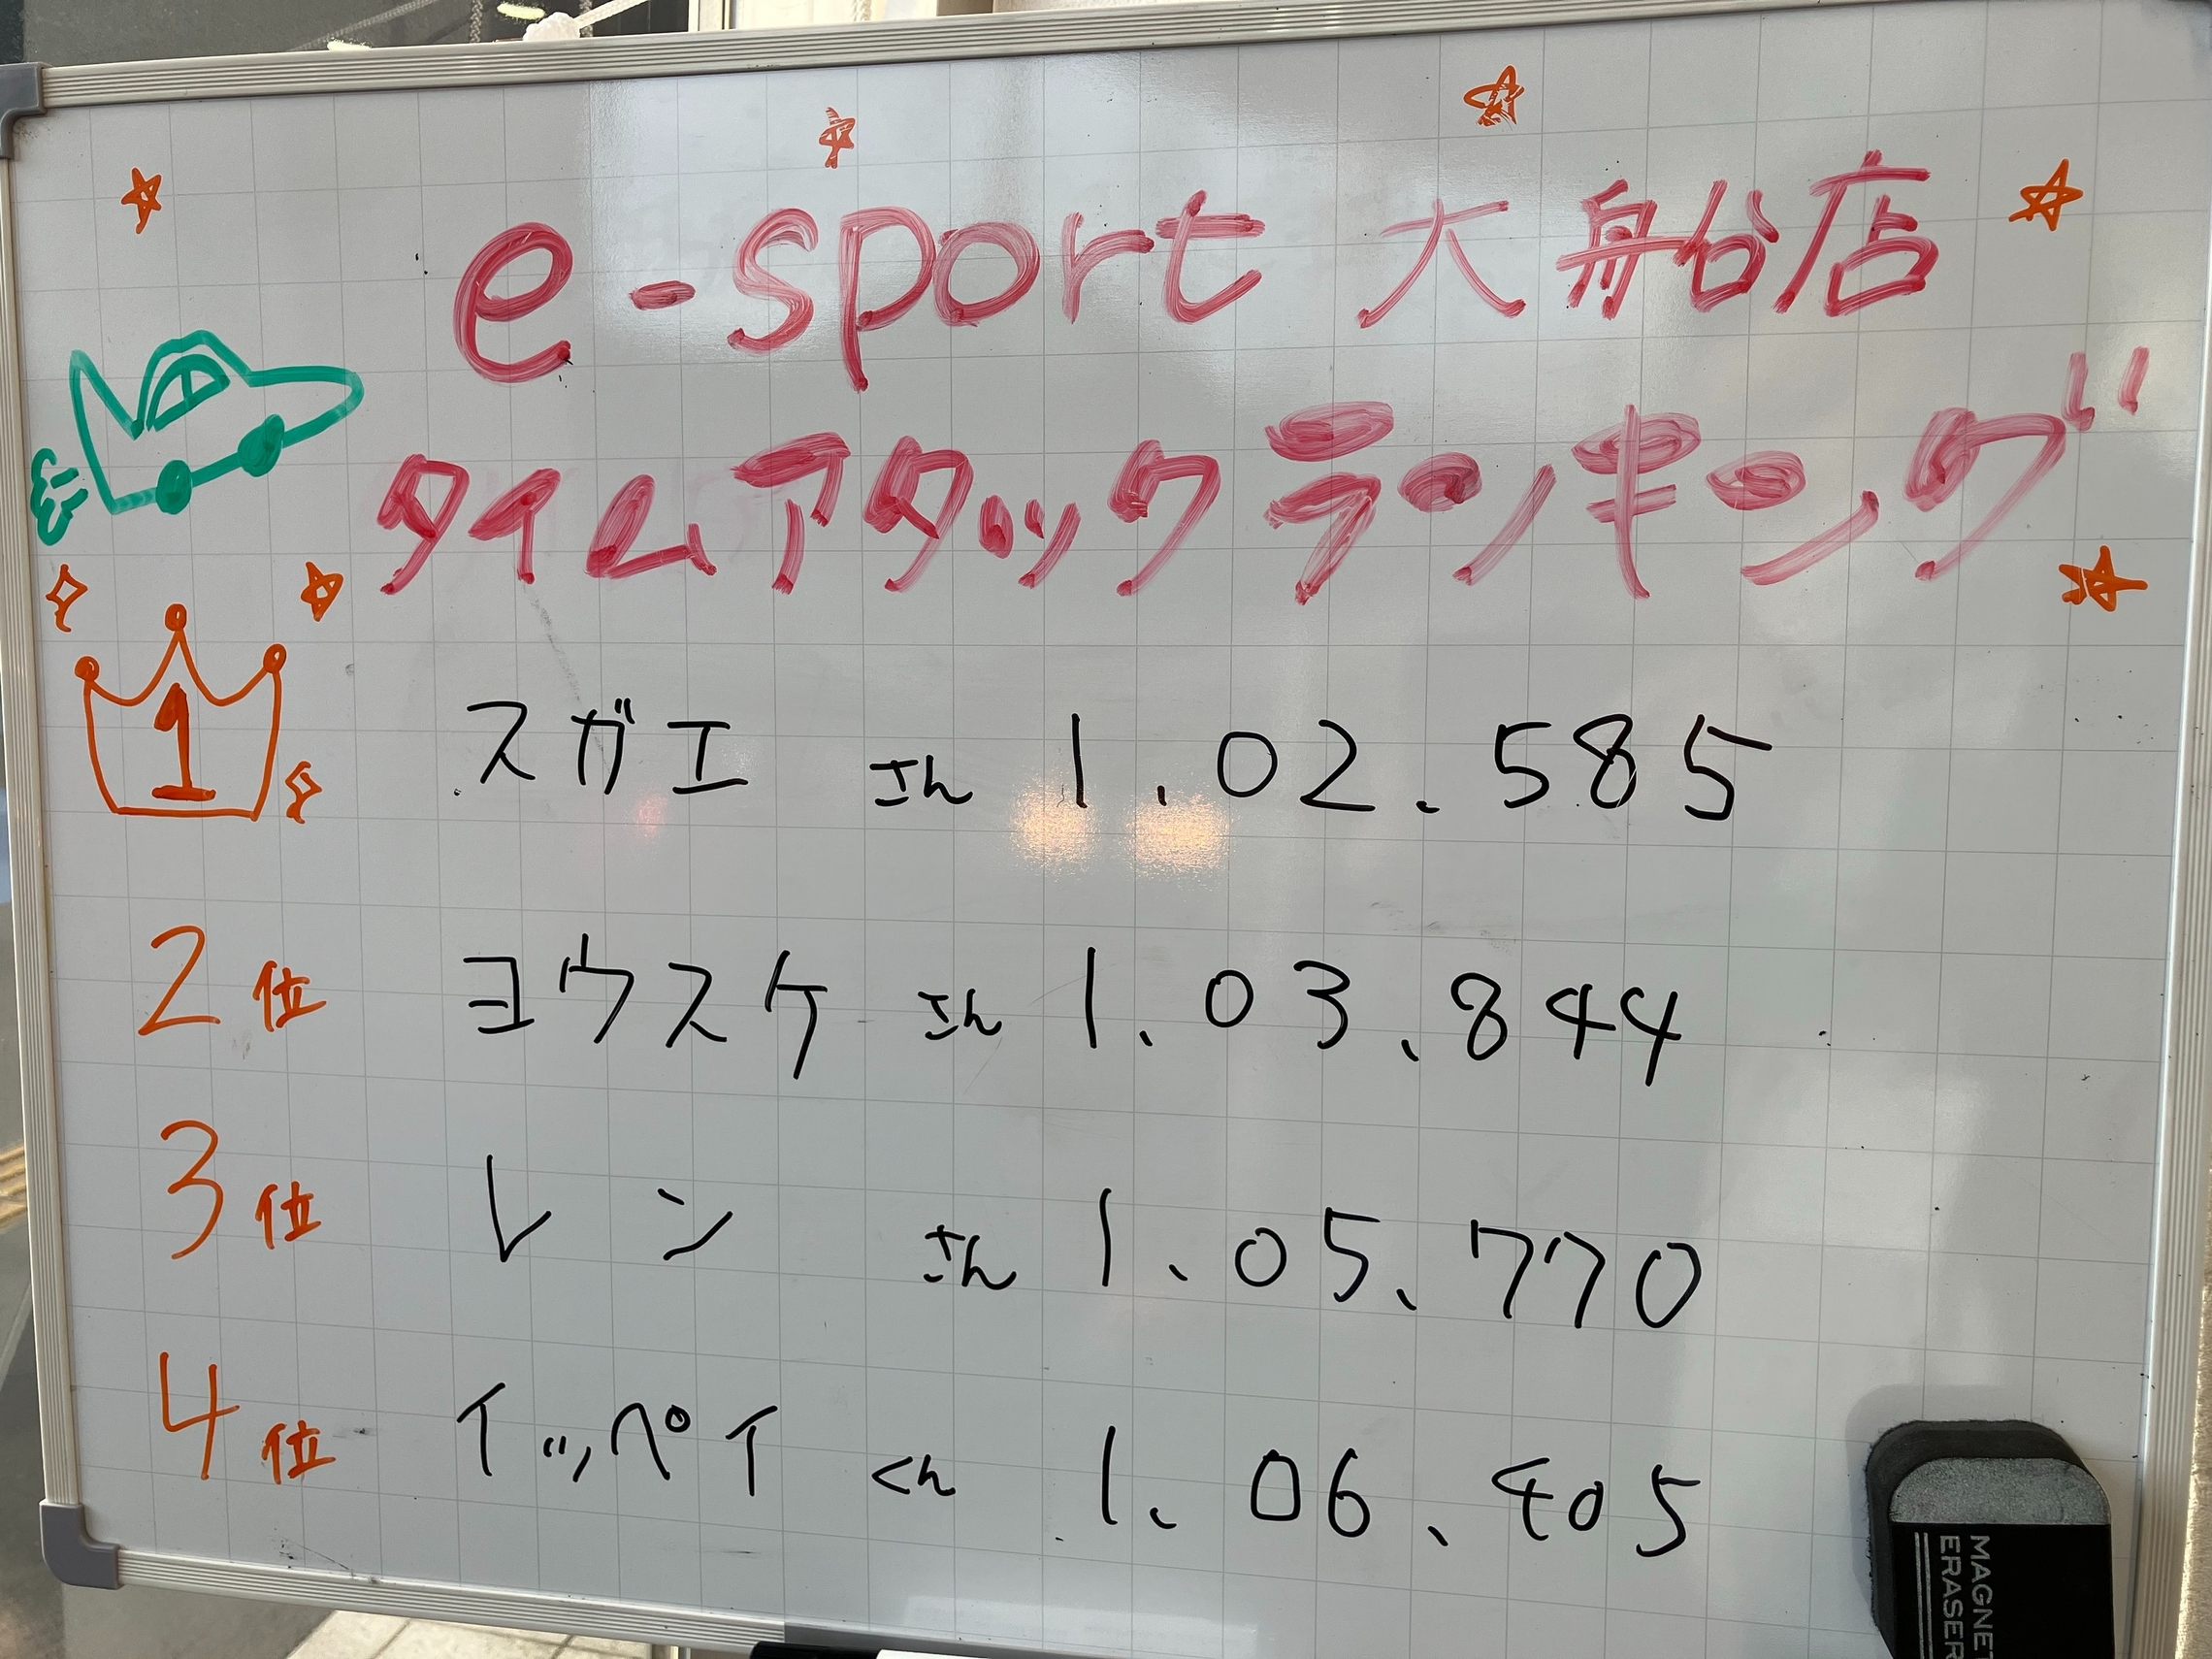 e-sport 大船店
タイムアタックランキング
1 スガエ さん 1.02.585
2位 ヨウスケ さん 1.03.844
3位 レン さん 1.05.770
4位 イッペイ くん 1.06.405
MAGNET
ERASER